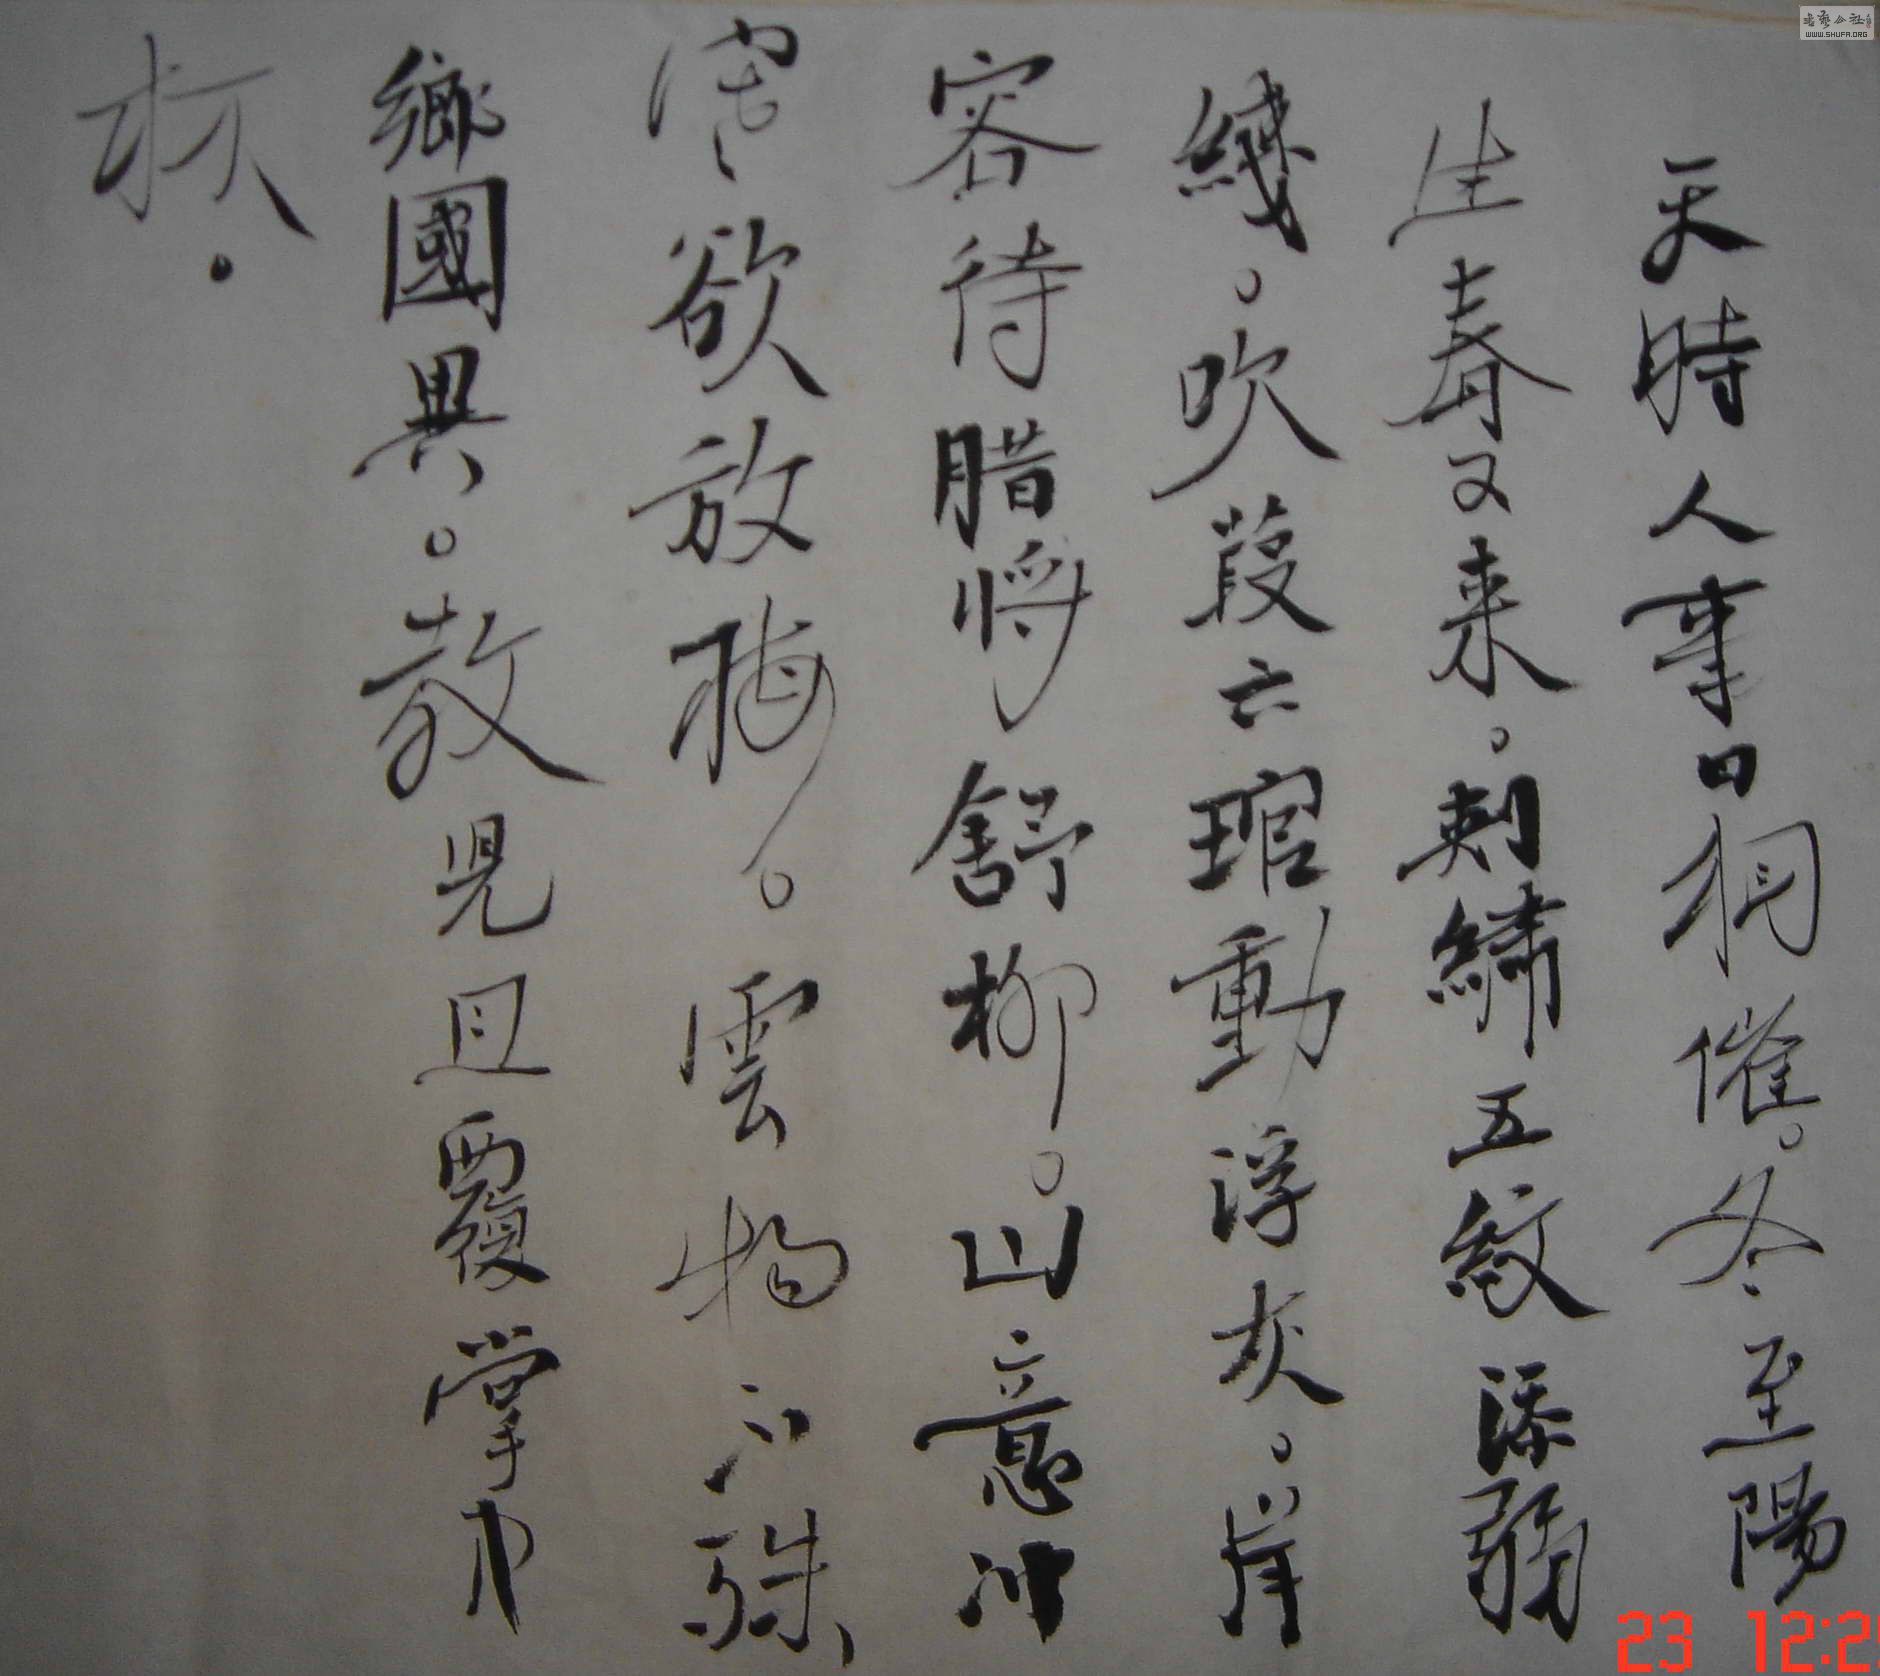 天時人事日相催。冬至陽
生春又来。刺繡五紋添弱
綫。吹葭六琯動浮灰。岸
容待腊將舒柳。山意冲
寒欲放梅。雲物不殊
鄉國異。教児且覆掌中
杯.
書藝公社
WWW.SHUFA.ORG
23 12:2